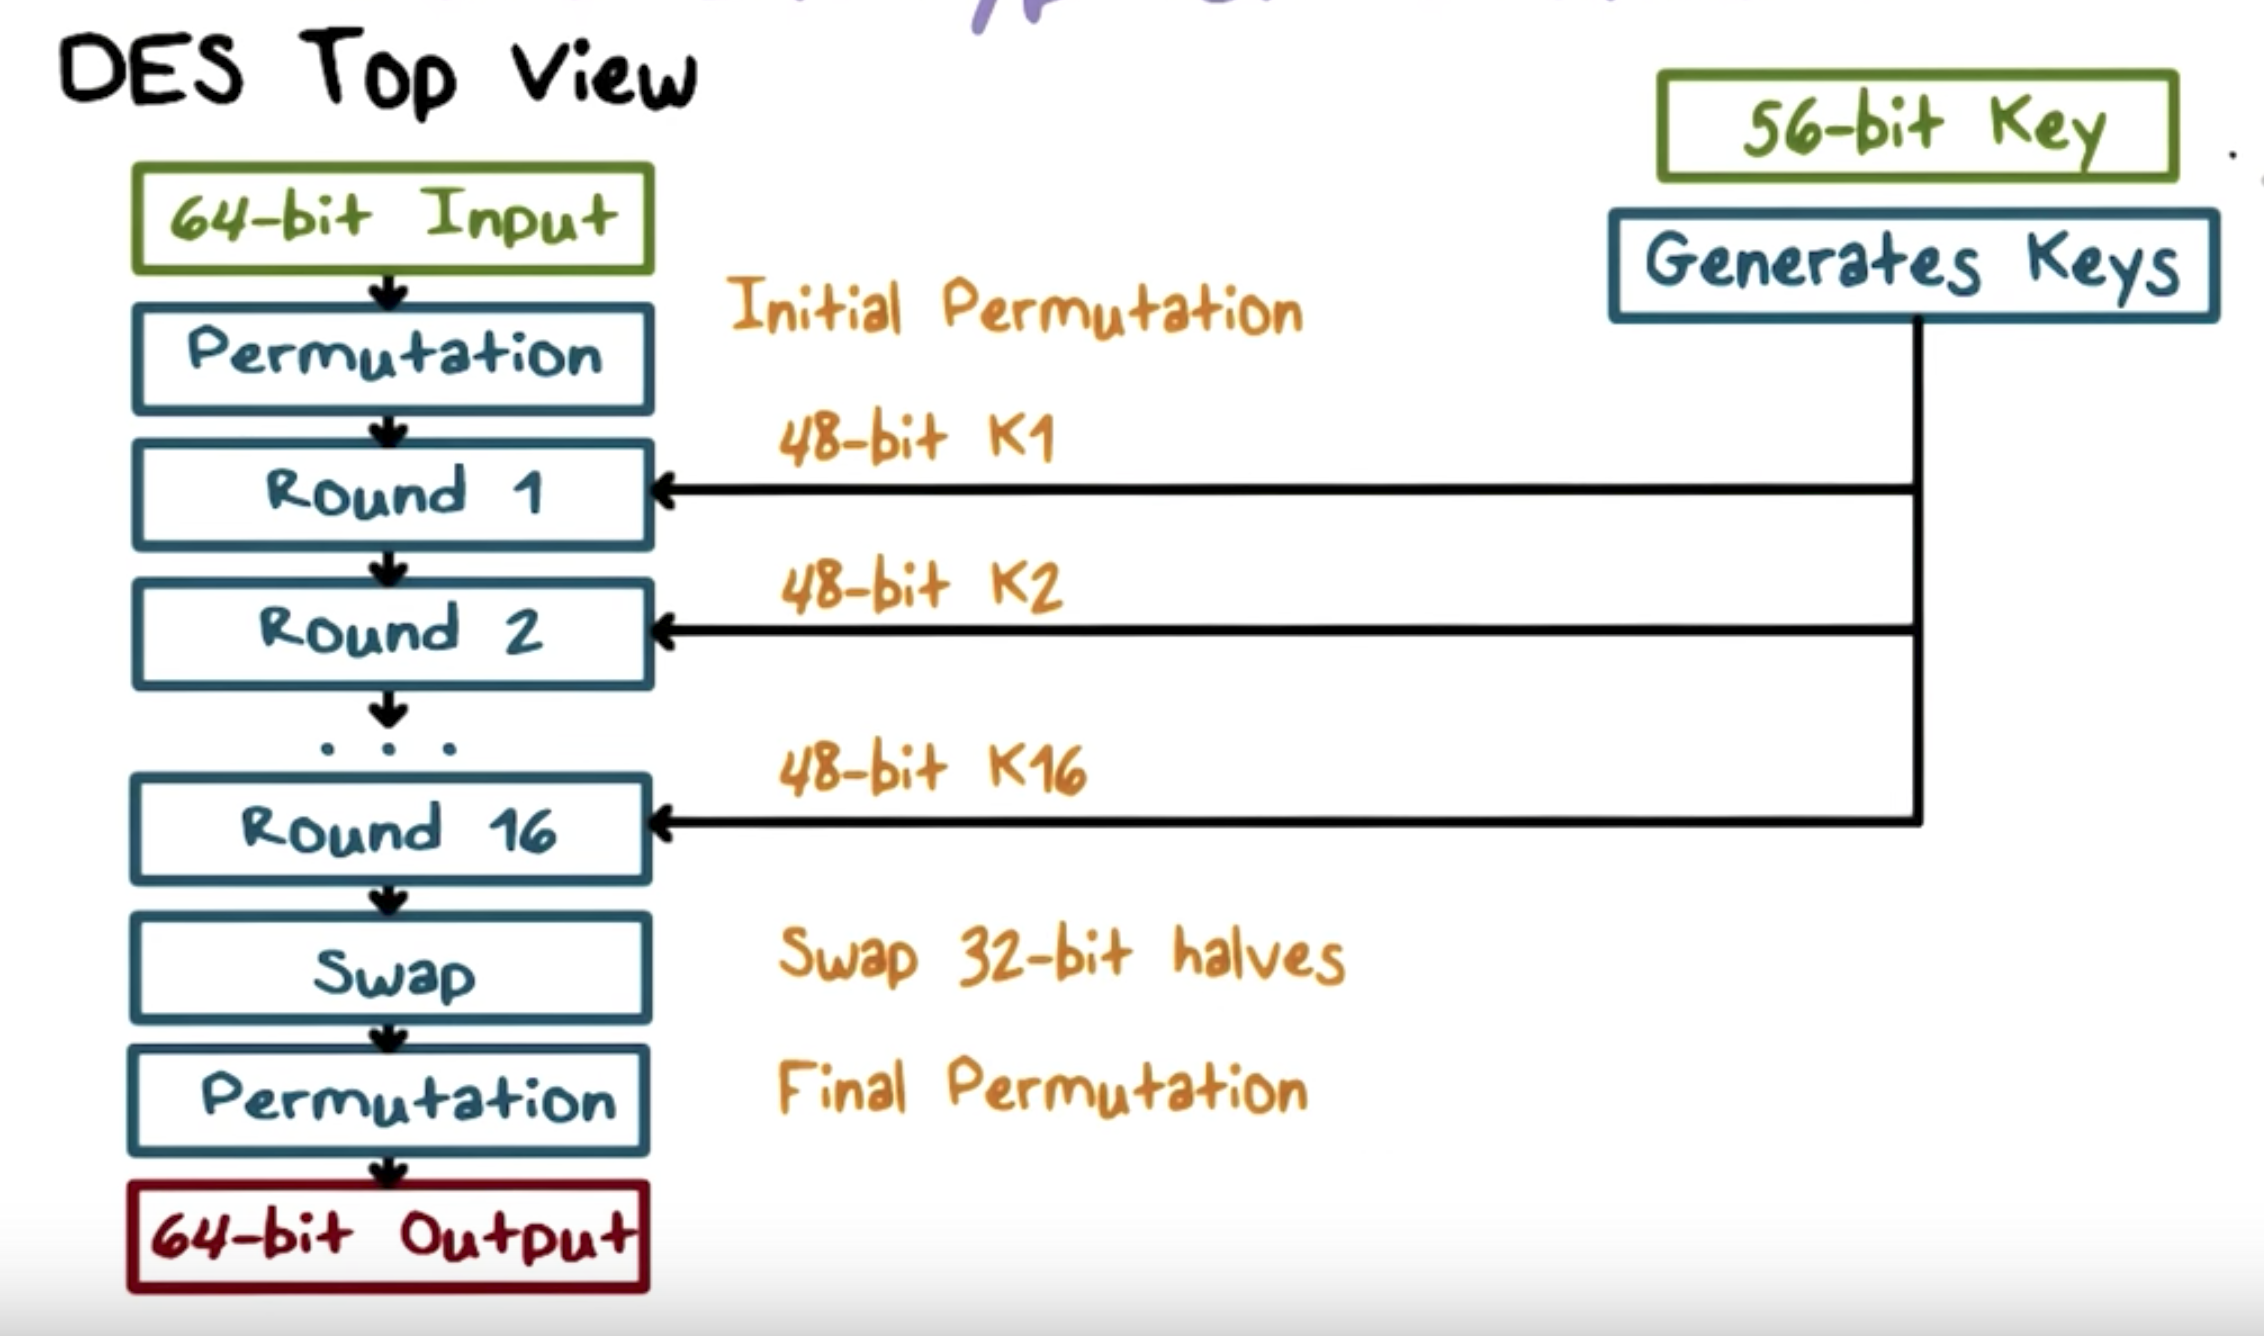 DES Top View
56-bit Key
Generates Keys
64-bit Input
Permutation
Initial Permutation
48-bit K1
Round 1
48-bit K2
Round 2
. . .
48-bit K16
Round 16
Swap
Swap 32-bit halves
Permutation
Final Permutation
64-bit Output